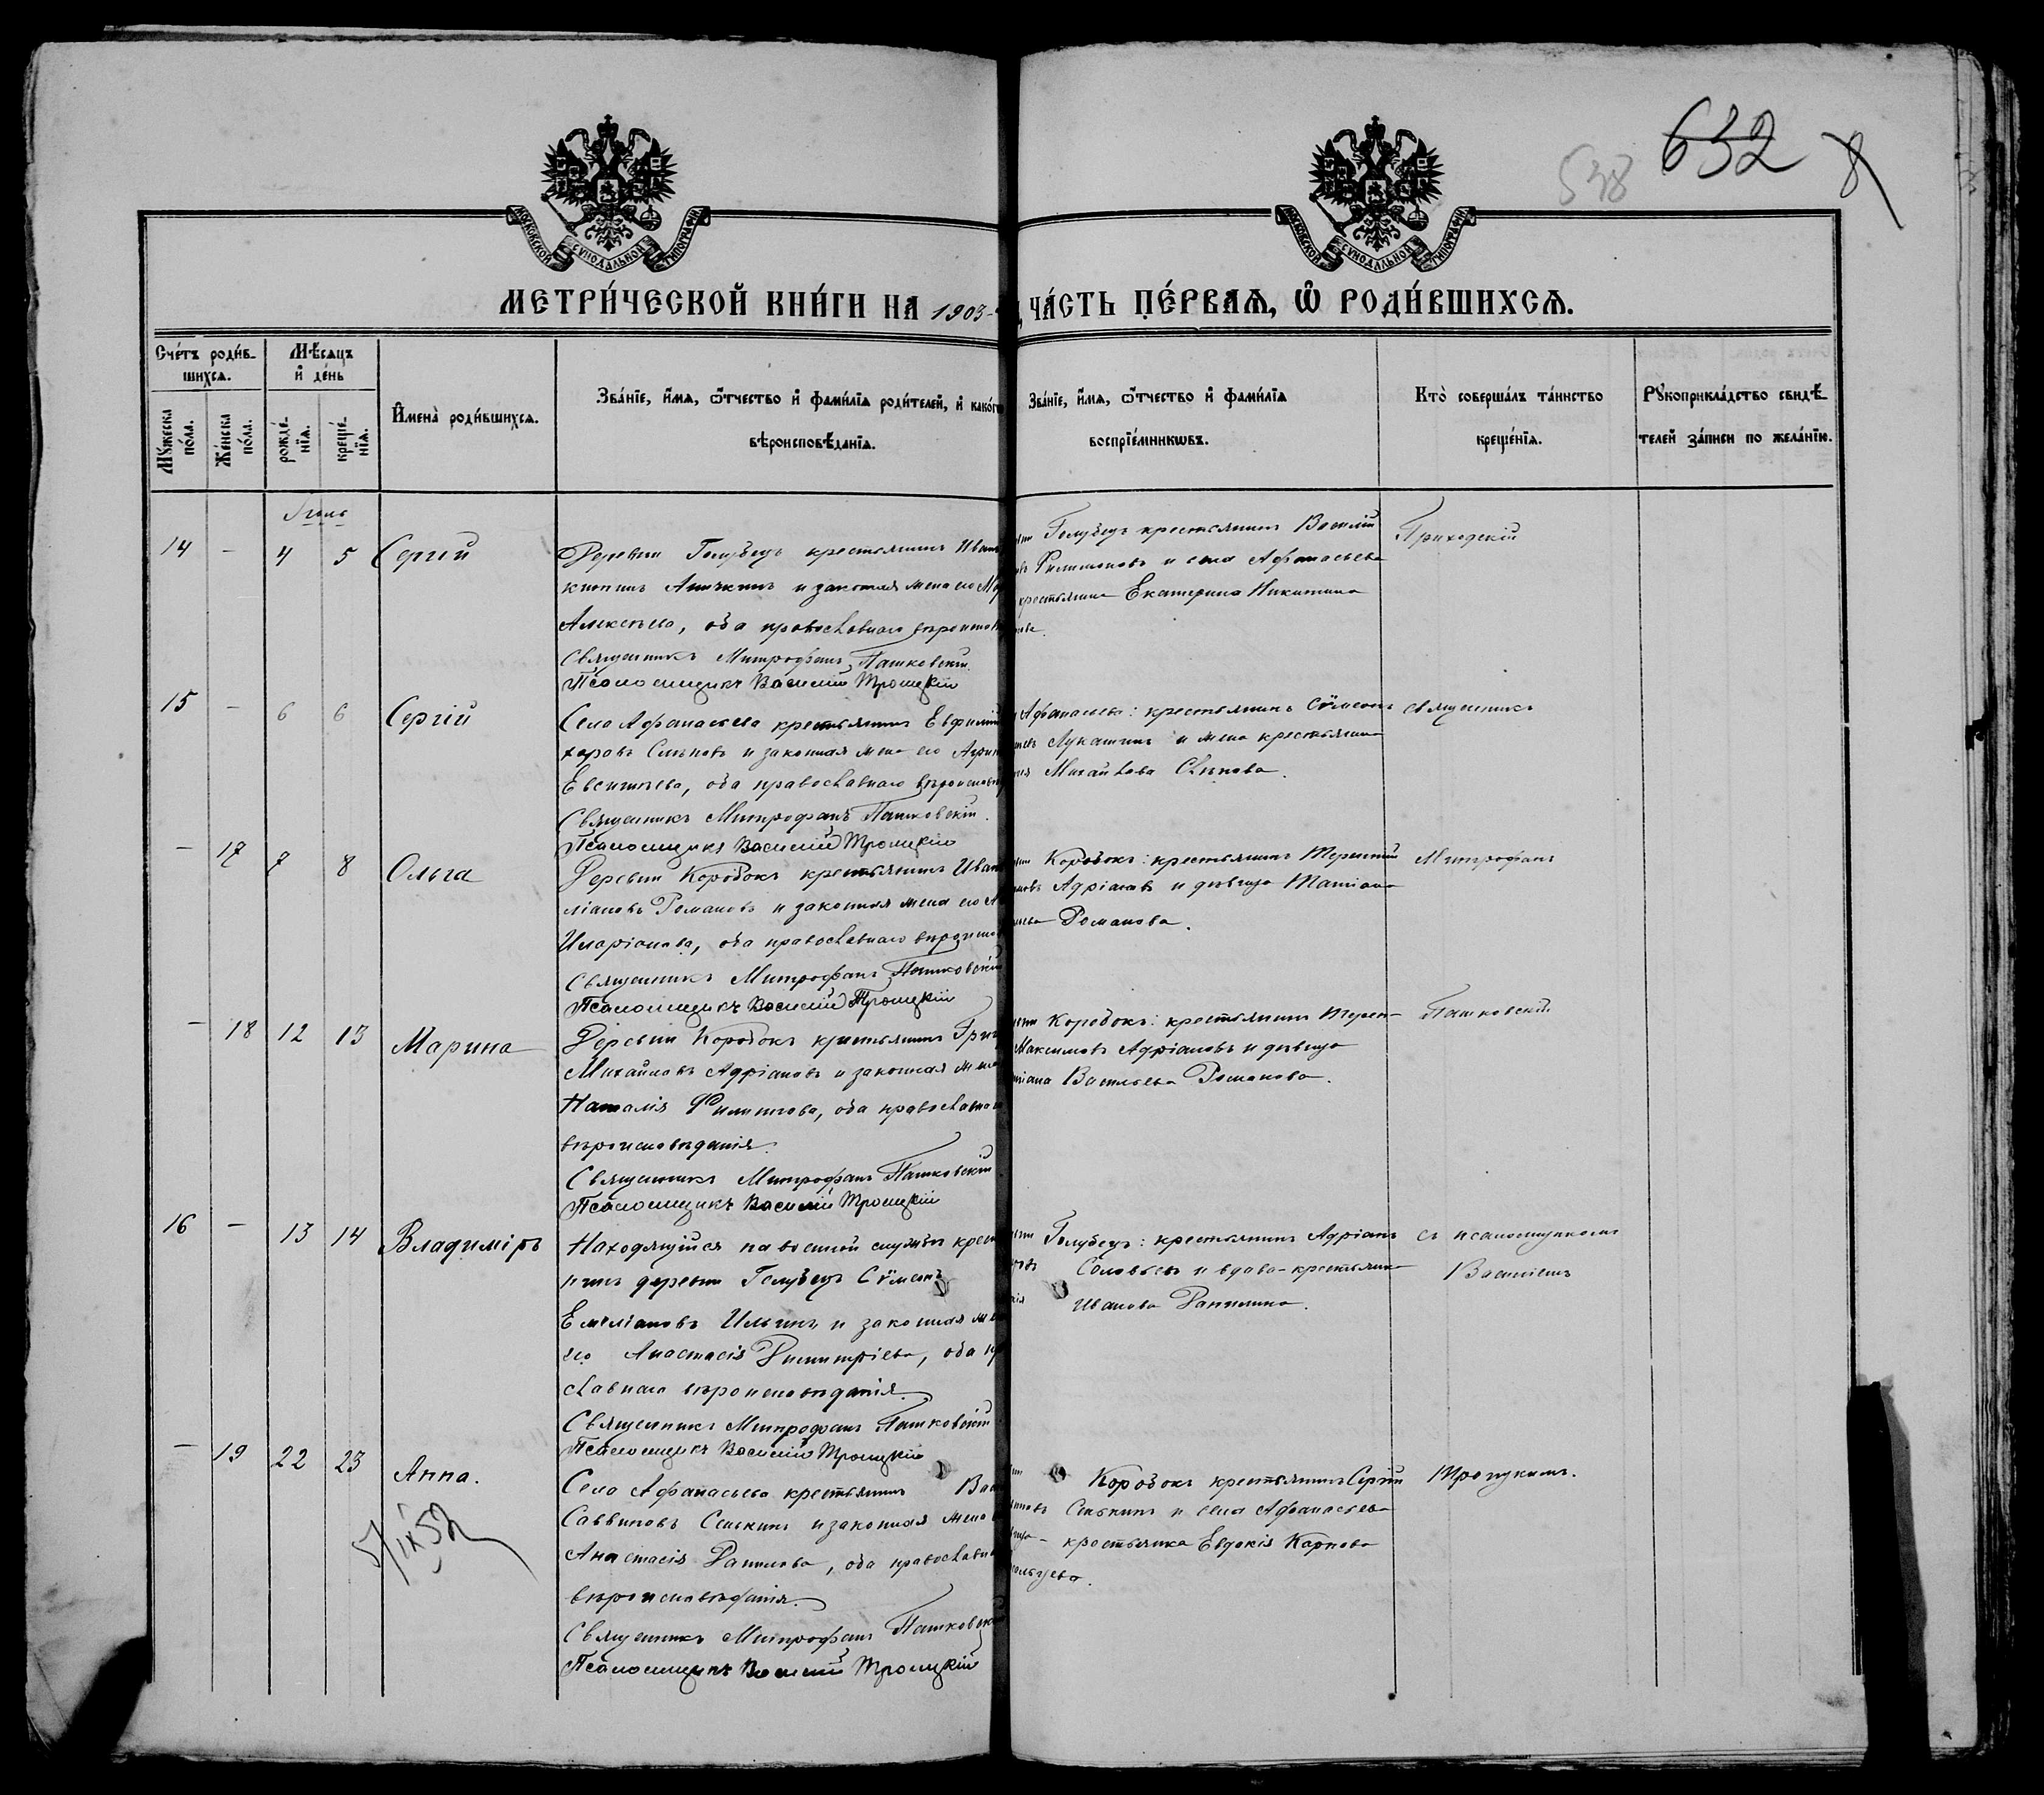 538 632 8
МОСКОВСКОЙ СѴНОДАЛЬНОЙ ТИПОГРАФІИ
МОСКОВСКОЙ СѴНОДАЛЬНОЙ ТИПОГРАФІИ
МЕТРИ́ЧЕСКОЙ КНИ́ГИ НА 1903
ЧА́СТЬ ПЕ́РВАѦ, Ѡ҆ РОДИ́ВШИХСѦ.
Сче́тъ роди́в-
шихсѧ.
Мꙋ́жеска по́ла.
Же́нска по́ла.
Мѣ́сѧцъ
и҆ де́нь
рожде́-
нїѧ.
креще́-
нїѧ.
И҆мена̀ роди́вшихсѧ.
Зва́нїе, и҆́мѧ, ѻ҆́тчество и҆ фами́лїѧ роди́телей, и҆ како́гѡ
вѣроисповѣ́данїѧ.
Зва́нїе, и҆́мѧ, ѻ҆́тчество и҆ фами́лїѧ
воспрїе́мникѡвъ.
Кто̀ соверша́лъ та́инство
креще́нїѧ.
Рꙋкоприкла́дство свидѣ́-
телей за́писи по жела́нїю.
14 - 4 5 Сергій
Деревни Голубецъ крестьянинъ Иванъ
и законная жена его
Алексѣева, оба православнаго
Священникъ Митрофанъ Пашковскій
Псаломщикъ Василій Троицкій
Голубецъ крестьянинъ Василій
Филимоновъ и села Афанасьева
крестьянка Екатерина Никитина
Приходскій
15 - 6 6 Сергій
Села Афанасьева крестьянинъ Евфимій
и законная жена его
Евсигнѣева, оба православнаго
Священникъ Митрофанъ Пашковскій.
Псаломщикъ Василій Троицкій
Афанасьева: крестьянинъ Сѷмеонъ
Лукашинъ и жена крестьянина
Михайлова
священникъ
- 17 7 8 Ольга
Деревни Коробокъ крестьянинъ Иванъ
Романовъ и законная жена его
Иларіонова, оба православнаго
Священникъ Митрофанъ Пашковскій
Псаломщикъ Василій Троицкій
Коробокъ: крестьянинъ Терентій
Адріановъ и дѣвица Татіана
Романова.
Митрофанъ
- 18 12 13 Марина
Деревни Коробокъ крестьянинъ
Михайловъ Адріановъ и законная жена
Наталія Филиппова, оба православнаго
вѣроисповѣданія.
Священникъ Митрофанъ Пашковскій
Псаломщикъ Василій Троицкій
Коробокъ: крестьянинъ Терен-
Максимовъ Адріановъ и дѣвица
Васильева Романова.
Пашковскій
16 - 13 14 Владиміръ
Находящійся на военной службѣ
деревни Голубецъ Сѷмеонъ
Емеліановъ Ильинъ и законная
его Анастасія Димитріева, оба
славнаго вѣроисповѣданія.
Священникъ Митрофанъ Пашковскій
Псаломщикъ Василій Троицкій
Голубецъ: крестьянинъ Адріанъ
Соловьевъ и вдова-крестьян-
Иванова Данилина.
съ псаломщикомъ
Василіемъ
- 19 22 23 Анна.
Села Афанасьева крестьянинъ
Саввиновъ Сенькинъ и законная жена
Анастасія Данилова, оба
вѣроисповѣданія.
Священникъ Митрофанъ Пашковскій
Псаломщикъ Василій Троицкій
Коробокъ крестьянинъ Сергій
Сенькинъ и села Афанасьева
крестьянка Евдокія Карпова
Троицкимъ.
5/IX 52